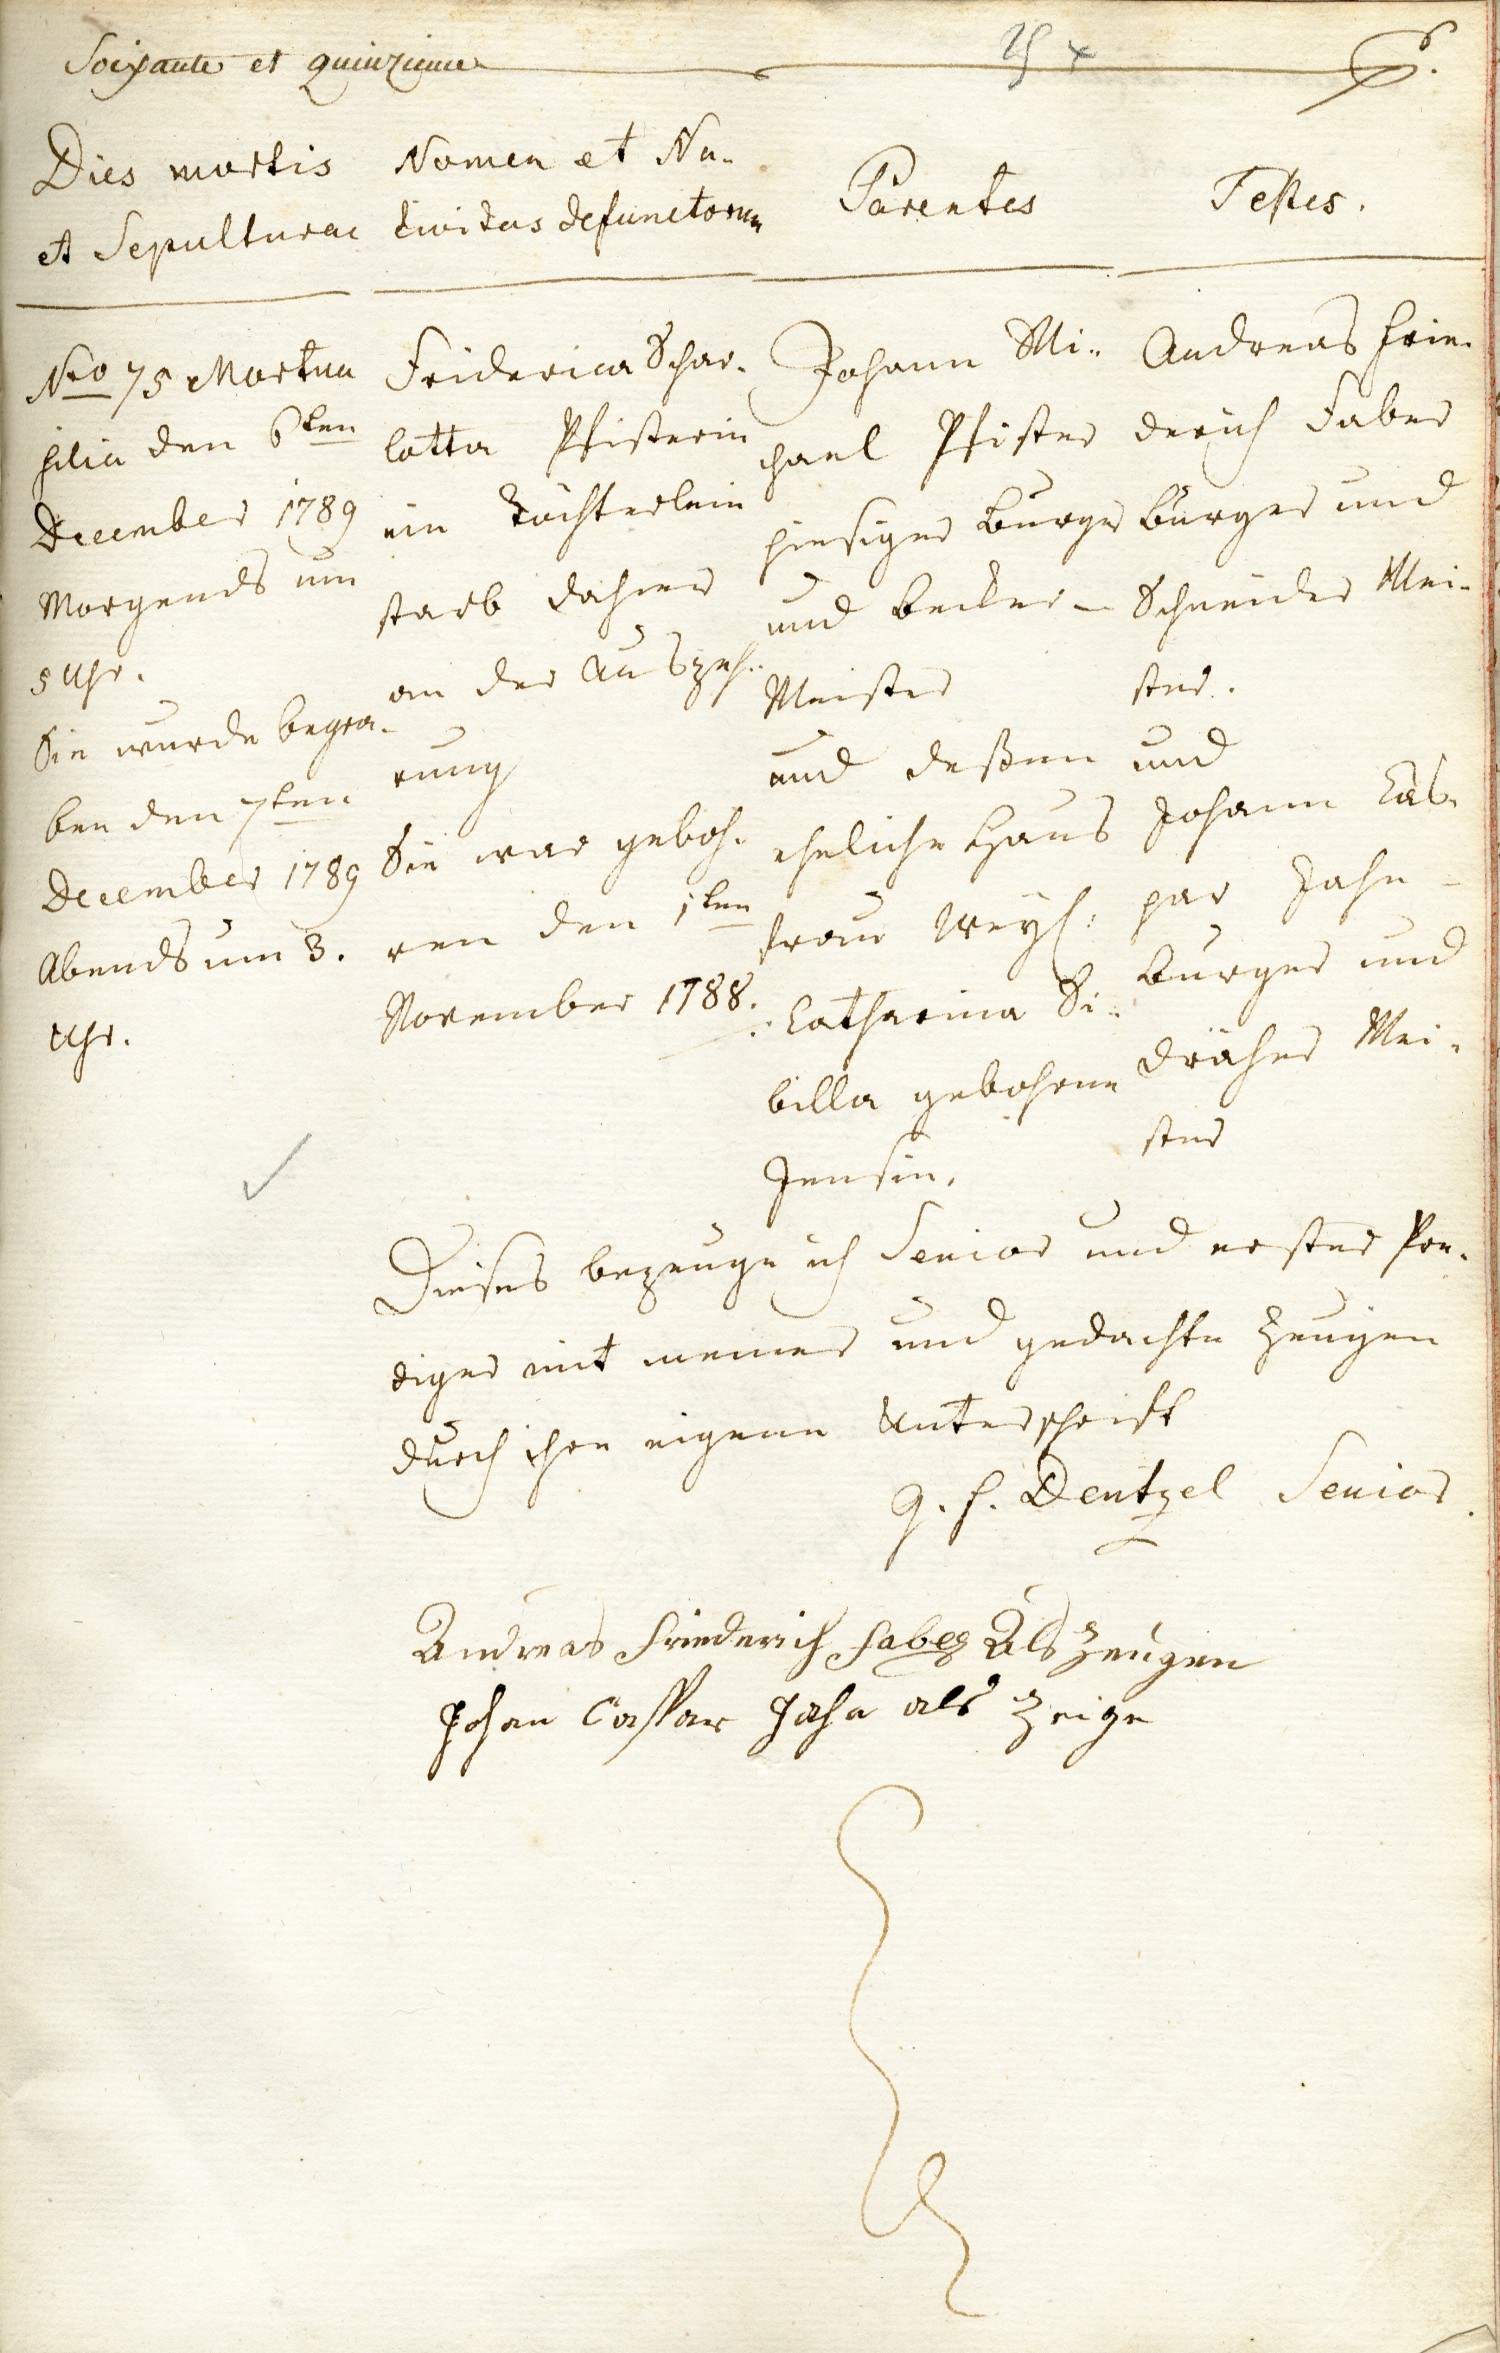 Soixante et quinzieme
Dies mortis
et Sepulturae
Nomen et Na-
tivitas defunctorum
Parentes
Testes.
Nro 75 Mortua
filia den 6ten
December 1789
Morgends um
5 Uhr.
Sie wurde begra-
ben den 7ten
December 1789
Abends um 3.
Uhr.
Friderica Schar-
lotta Pfisterin
ein Töchterlein
starb dahier
an der Auszeh-
rung
Sie war geboh-
ren den 1ten
November 1788.
Johann Mi-
chael Pfister
hiesiger Burger
und Becker-
Meister
und deßen
eheliche Haus
frau Weyl:
Catharina Si-
billa gebohrne
Jensin.
Andreas Frie-
derich Faber
Burger und
Schneider Mei-
ster.
und
Johann Cas-
par Jahn
Burger und
Dräher Mei-
ster
Dieses bezeuge ich Senior und erster Pre-
diger mit meiner und gedachte Zeugen
durch ihre eigene Unterschrift
G. F. Dentzel Senior
Andreas Friederich Faber Als Zeugen
Johan Casspar Jahn als Zeige